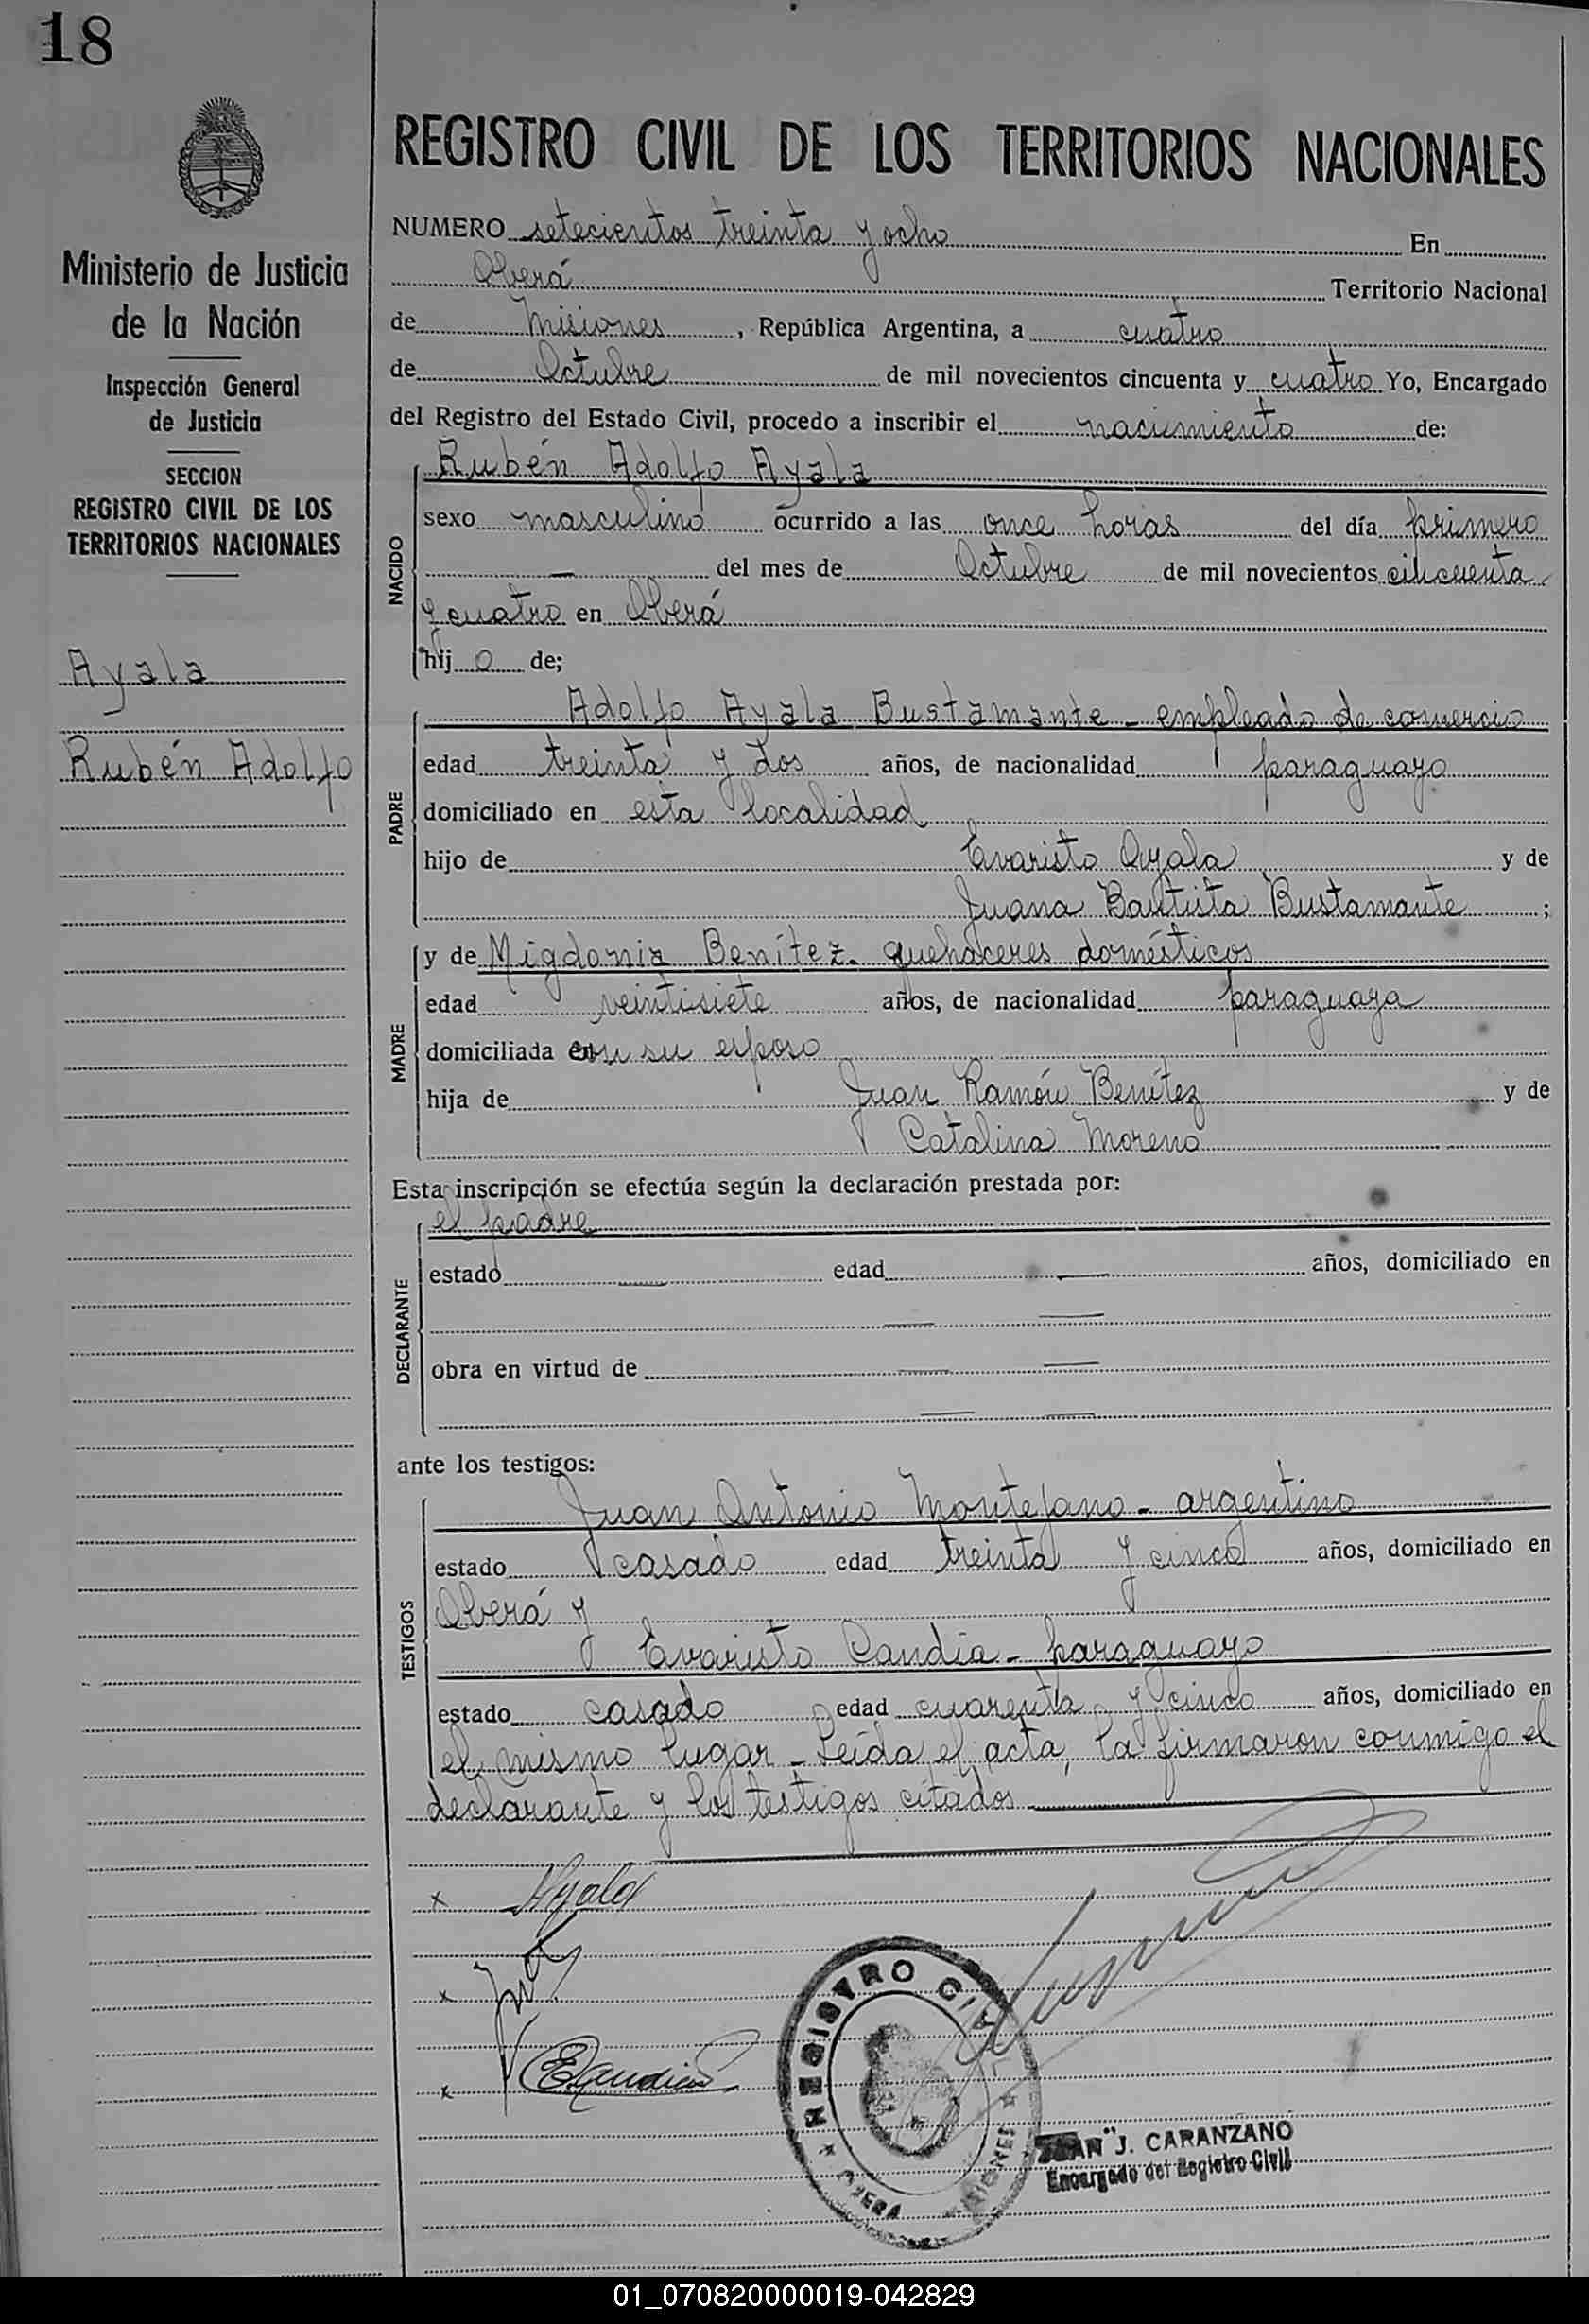 18
Ministerio de Justicia
de la Nación
Inspección General
de Justicia
SECCION
REGISTRO CIVIL DE LOS
TERRITORIOS NACIONALES
Ayala
Rubén Adolfo
REGISTRO CIVIL DE LOS TERRITORIOS NACIONALES
NUMERO setecientos treinta y ocho En
Oberá Territorio Nacional
de Misiones, República Argentina, a cuatro
de Octubre de mil novecientos cincuenta y cuatro Yo, Encargado
del Registro del Estado Civil, procedo a inscribir el nacimiento de:
NACIDO
Rubén Adolfo Ayala
sexo masculino ocurrido a las once horas del día primero
— del mes de Octubre de mil novecientos cincuenta
y cuatro en Oberá
hijo de;
PADRE
Adolfo Ayala Bustamante - empleado de comercio
edad treinta y dos años, de nacionalidad paraguayo
domiciliado en esta localidad
hijo de Evaristo Ayala y de
Juana Bautista Bustamante ;
MADRE
y de Migdonia Benítez. quehaceres domésticos
edad veintisiete años, de nacionalidad paraguaya
domiciliada con su esposo
hija de Juan Ramón Benítez y de
Catalina Moreno
Esta inscripción se efectúa según la declaración prestada por:
DECLARANTE
el padre
estado — edad — años, domiciliado en
— —
obra en virtud de — —
— —
ante los testigos:
TESTIGOS
Juan Antonio Montejano - argentino
estado casado edad treinta y cinco años, domiciliado en
Oberá y
Evaristo Candia - paraguayo
estado casado edad cuarenta y cinco años, domiciliado en
el mismo lugar - Leída el acta, la firmaron conmigo el
declarante y los testigos citados
x Ayala
x
x ECandia
REGISTRO CIVIL
OBERA MISIONES
JUAN J. CARANZANO
Encargado del Registro Civil
01_070820000019-042829